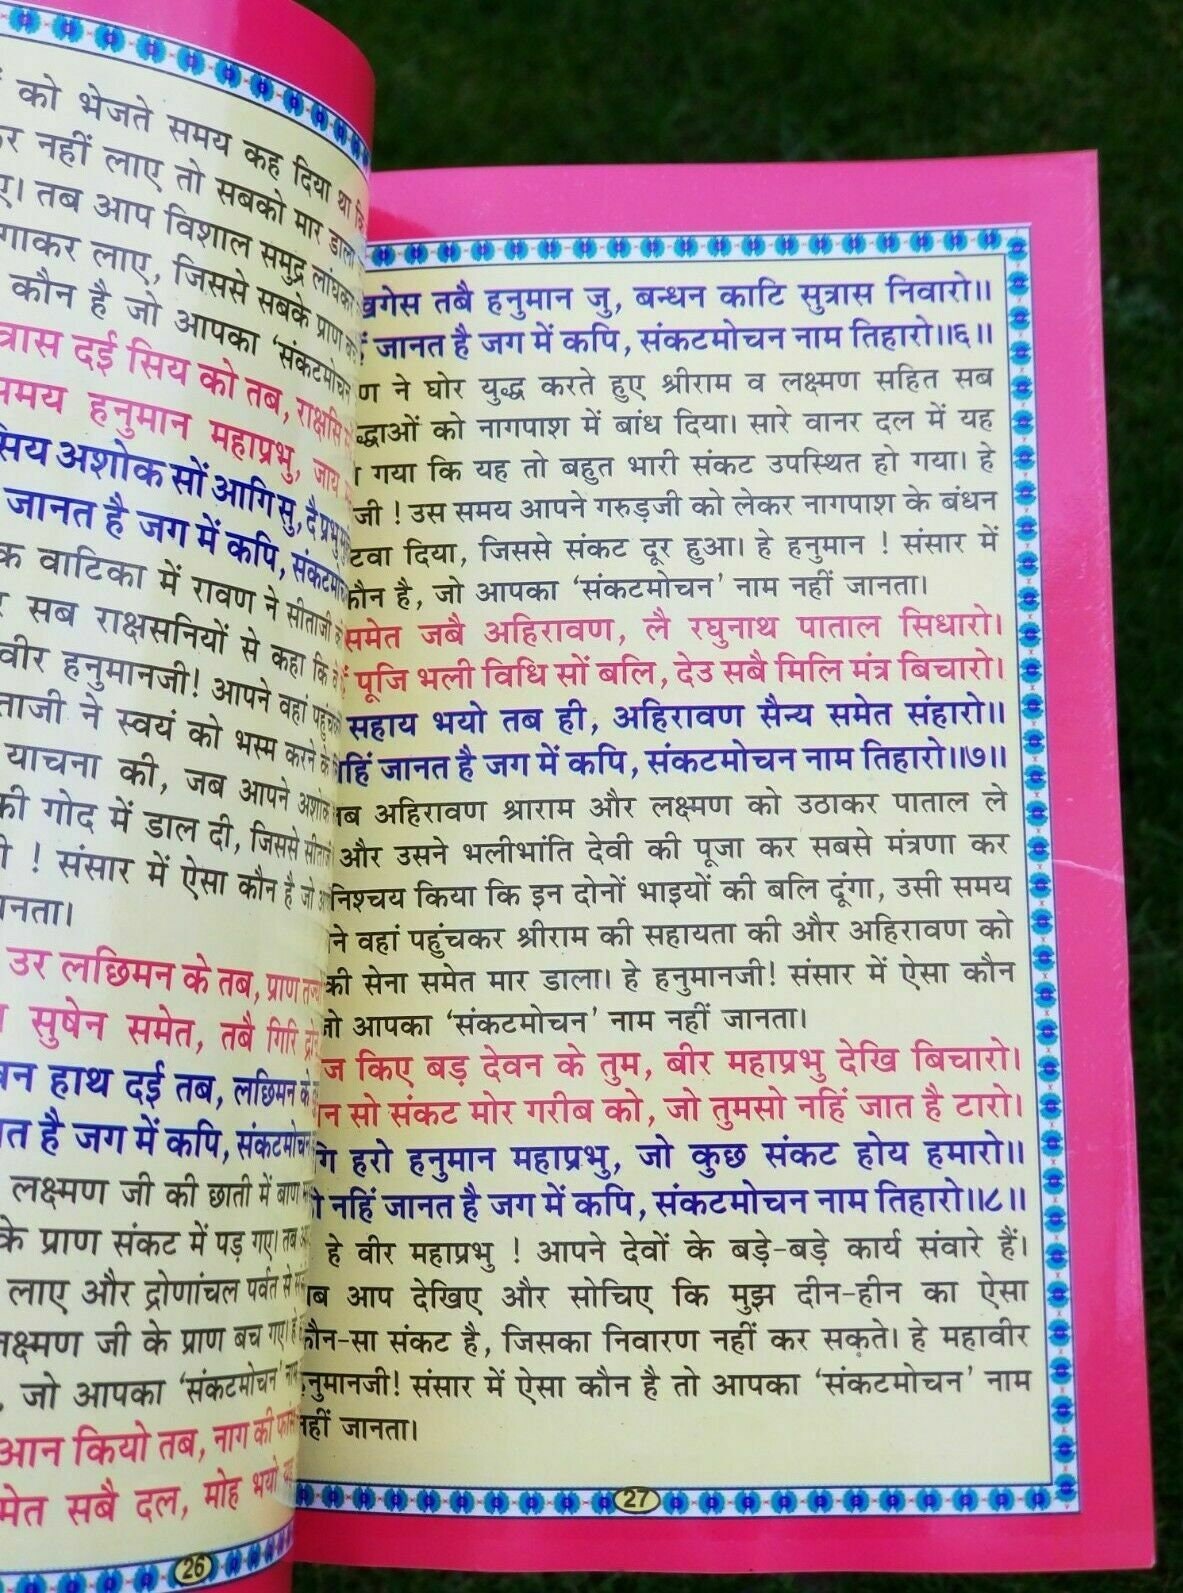 को भेजते समय कह दिया था कि
नहीं लाए तो सबको मार डाला
तब आप विशाल समुद्र लांघकर
लाए, जिससे सबके प्राण
कौन है जो आपका ‘संकटमोचन
त्रास दई सिय को तब, राक्षसि
समय हनुमान महाप्रभु, जाय
सिय अशोक सों आगि सु, दै प्रभु
जानत है जग में कपि, संकटमोचन
वाटिका में रावण ने सीताजी को
सब राक्षसनियों से कहा कि
वीर हनुमानजी! आपने वहां पहुंचकर
ने स्वयं को भस्म करने के
याचना की, जब आपने अशोक
की गोद में डाल दी, जिससे
! संसार में ऐसा कौन है जो
उर लछिमन के तब, प्राण
सुषेन समेत, तबै गिरि
हाथ दई तब, लछिमन के
है जग में कपि, संकटमोचन
लक्ष्मण जी की छाती में बाण
के प्राण संकट में पड़ गए। तब
लाए और द्रोणांचल पर्वत से
लक्ष्मण जी के प्राण बच गए।
जो आपका ‘संकटमोचन’ नाम
आन कियो तब, नाग की
सबै दल, मोह भयो
26
खगेस तबै हनुमान जु, बन्धन काटि सुत्रास निवारो॥
जानत है जग में कपि, संकटमोचन नाम तिहारो॥६॥
ने घोर युद्ध करते हुए श्रीराम व लक्ष्मण सहित सब
को नागपाश में बांध दिया। सारे वानर दल में यह
गया कि यह तो बहुत भारी संकट उपस्थित हो गया। हे
जी ! उस समय आपने गरुड़जी को लेकर नागपाश के बंधन
दिया, जिससे संकट दूर हुआ। हे हनुमान ! संसार में
कौन है, जो आपका ‘संकटमोचन’ नाम नहीं जानता।
समेत जबै अहिरावण, लै रघुनाथ पाताल सिधारो।
पूजि भली विधि सों बलि, देउ सबै मिलि मंत्र बिचारो।
सहाय भयो तब ही, अहिरावण सैन्य समेत संहारो॥
जानत है जग में कपि, संकटमोचन नाम तिहारो॥७॥
अहिरावण श्रीराम और लक्ष्मण को उठाकर पाताल ले
और उसने भलीभांति देवी की पूजा कर सबसे मंत्रणा कर
निश्चय किया कि इन दोनों भाइयों की बलि दूंगा, उसी समय
ने वहां पहुंचकर श्रीराम की सहायता की और अहिरावण को
की सेना समेत मार डाला। हे हनुमानजी! संसार में ऐसा कौन
जो आपका ‘संकटमोचन’ नाम नहीं जानता।
किए बड़ देवन के तुम, बीर महाप्रभु देखि बिचारो।
सो संकट मोर गरीब को, जो तुमसो नहिं जात है टारो।
हरो हनुमान महाप्रभु, जो कुछ संकट होय हमारो॥
नहिं जानत है जग में कपि, संकटमोचन नाम तिहारो॥८॥
हे वीर महाप्रभु ! आपने देवों के बड़े-बड़े कार्य संवारे हैं।
आप देखिए और सोचिए कि मुझ दीन-हीन का ऐसा
कौन-सा संकट है, जिसका निवारण नहीं कर सकते। हे महावीर
हनुमानजी! संसार में ऐसा कौन है तो आपका ‘संकटमोचन’ नाम
नहीं जानता।
27